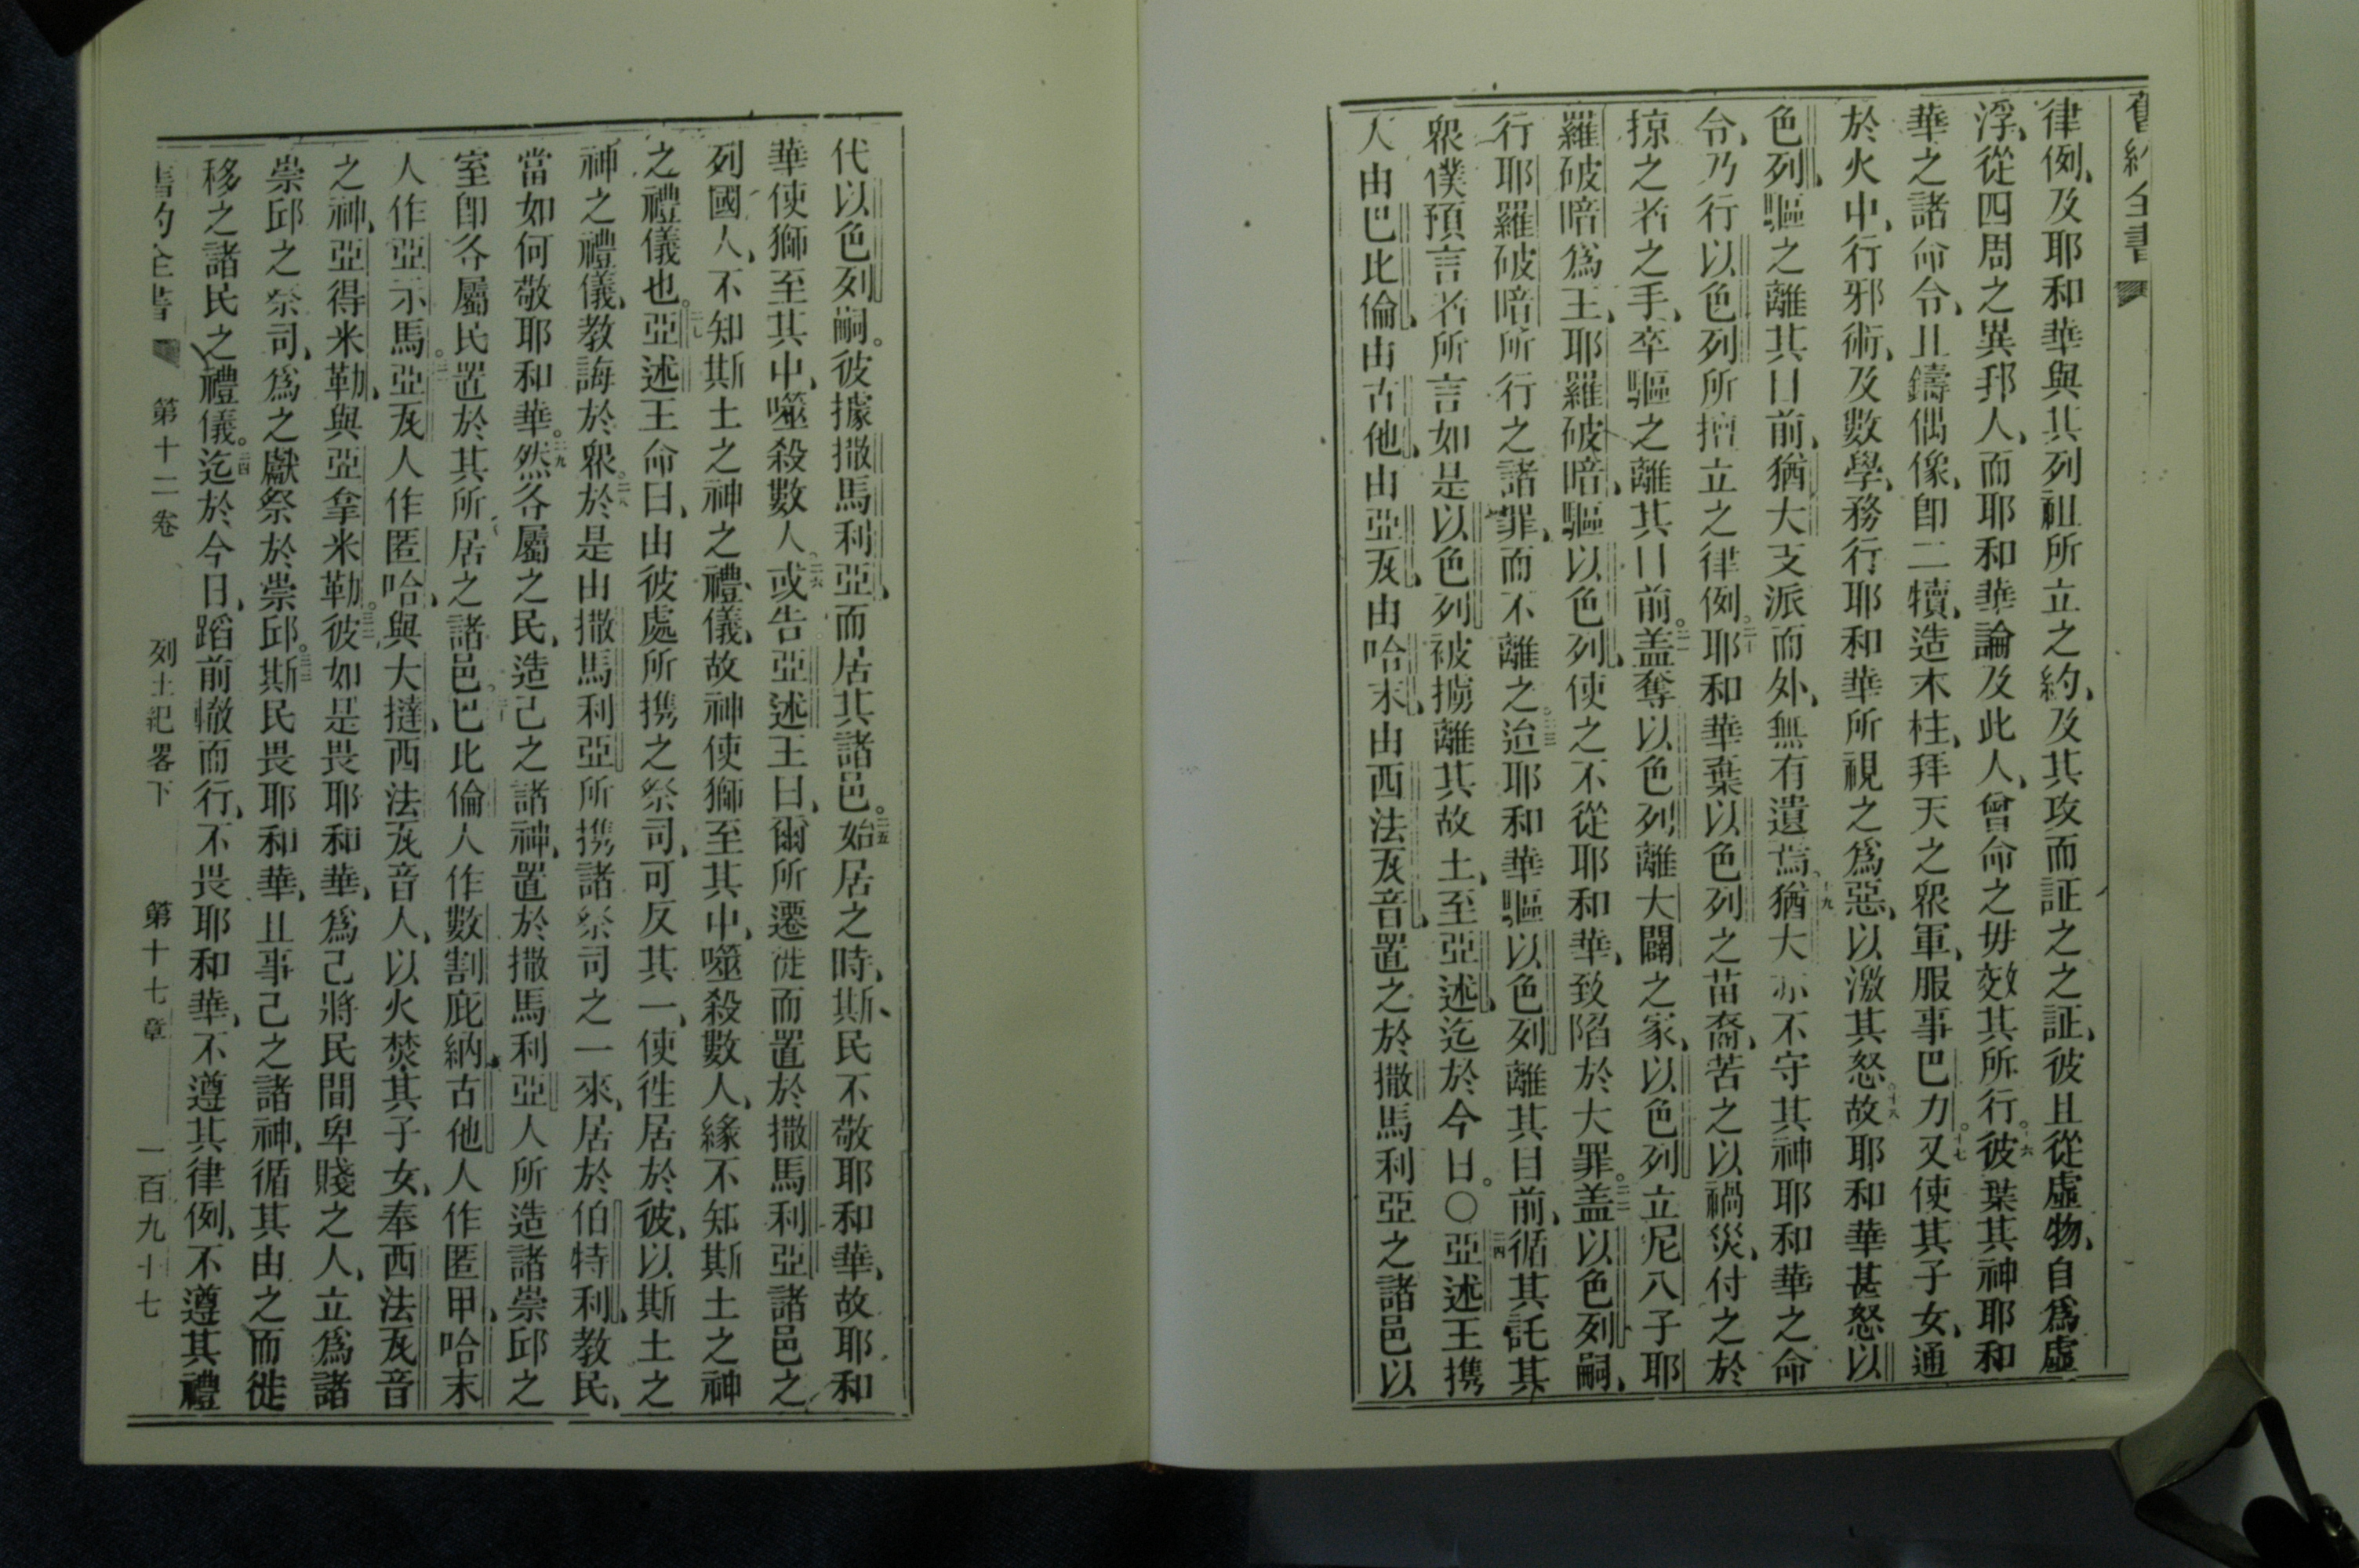 舊約全書
律例、及耶和華與其列祖所立之約、及其攻而証之之証、彼且從虛物、自爲虛
浮、從四周之異邦人、而耶和華論及此人、曾命之毋效其所行。十六彼棄其神耶和
華之諸命令、且鑄偶像、即二犢、造木柱、拜天之衆軍、服事巴力。十七又使其子女、通
於火中、行邪術、及數學、務行耶和華所視之爲惡、以激其怒。十八故耶和華甚怒以
色列、驅之離其目前、猶大支派而外、無有遺焉。十九猶大亦不守其神耶和華之命
令、乃行以色列所擅立之律例。二十耶和華棄以色列之苗裔、苦之以禍災、付之於
掠之者之手、卒驅之離其目前。二一盖奪以色列離大闢之家、以色列立尼八子耶
羅破暗爲王、耶羅破暗、驅以色列、使之不從耶和華、致陷於大罪。二二盖以色列嗣、
行耶羅破暗所行之諸罪、而不離之。二三迨耶和華驅以色列離其目前、循其託其
衆僕預言者所言如是以色列被擄離其故土、至亞述、迄於今日。〇二四亞述王携
人由巴比倫、由古他、由亞瓦、由哈末、由西法瓦音、置之於撒馬利亞之諸邑以
代以色列嗣。彼據撒馬利亞、而居其諸邑。二五始居之時、斯民不敬耶和華、故耶和
華使獅至其中、噬殺數人。二六或告亞述王曰、爾所遷徙而置於撒馬利亞諸邑之
列國人、不知斯土之神之禮儀、故神使獅至其中、噬殺數人、緣不知斯土之神
之禮儀也。二七亞述王命曰、由彼處所携之祭司、可反其一、使徃居於彼、以斯土之
神之禮儀、教誨於衆。二八於是由撒馬利亞所携諸祭司之一來、居於伯特利、教民、
當如何敬耶和華。二九然各屬之民、造己之諸神、置於撒馬利亞人所造諸崇邱之
室卽各屬民置於其所居之諸邑。三十巴比倫人作數割庇納、古他人作匿甲、哈末
人作亞示馬。三一亞瓦人作匿哈、與大撻、西法瓦音人、以火焚其子女、奉西法瓦音
之神、亞得米勒、與亞拿米勒。三二彼如是畏耶和華、爲己將民間卑賤之人、立爲諸
崇邱之祭司、爲之獻祭於崇邱。三三斯民畏耶和華、且事己之諸神、循其由之而徙
移之諸民之禮儀。三四迄於今日、蹈前轍而行、不畏耶和華、不遵其律例、不遵其禮
舊約全書 第十二卷 列王紀畧下 第十七章 一百九十七